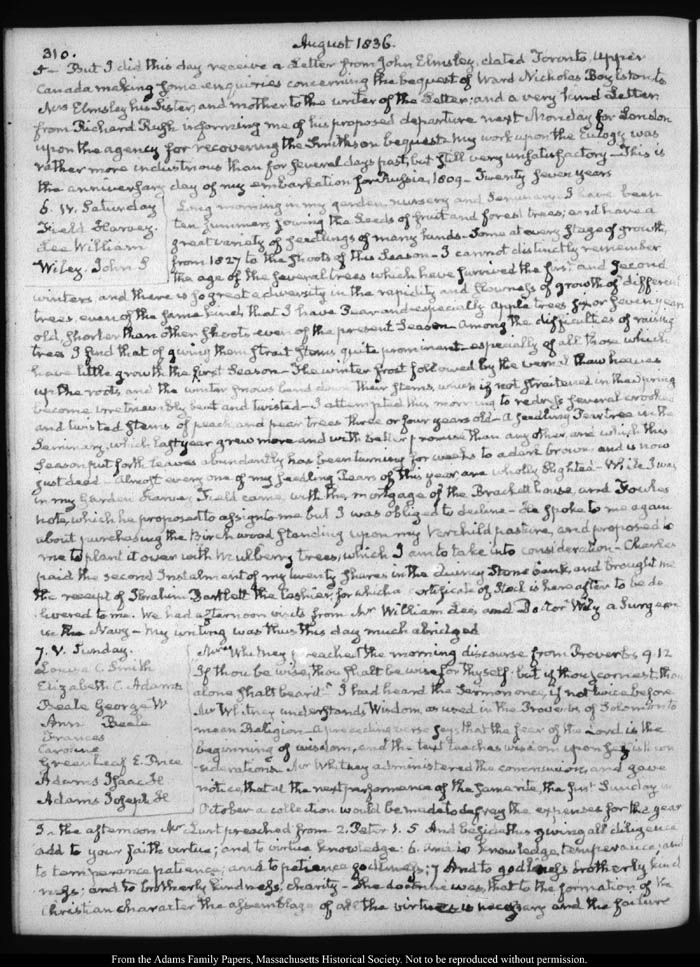 310.
August 1836.
5 — But I did this day receive a Letter from John Elmsley, dated Toronto, Upper
Canada making some enquiries concerning the bequest of Ward Nicholas Boylston to
Mrs Elmsley his Sister, and mother to the writer of the Letter; and a very kind Letter
from Richard Rush informing me of his proposed departure next Monday for London
upon the agency for recovering the Smithson bequest. My work upon the Eulogy was
rather more industrious than for several days past, but still very unsatisfactory — This is
the anniversary day of my embarkation for Russia, 1809 — Twenty seven years
6. IV. Saturday
Field Harvey.
Lee William
Wiley. John S
Long morning in my garden, nursery and Seminary. I have been
ten summers sowing the Seeds of fruit and forest trees; and have a
great variety of seedlings of many kinds — some at every stage of growth,
from 1827 to the shoots of this Season — I cannot distinctly remember
the age of the several trees which have survived the first and second
winters, and there is so great a diversity in the rapidity and slowness of growth of different
trees, even of the same kind, that I have Pear and especially apple trees six or seven years
old, shorter than other shoots even of the present Season — Among the difficulties of raising
trees I find that of giving them strait stems quite prominent especially of all those which
have little growth the first Season — The winter frost followed by the vernal thaw heaves
up the roots, and the winter snows bend down their stems, which if not straitened in the Spring
become irretrievably bent and twisted — I attempted this morning to redress several crooked
and twisted stems of peach and pear trees three or four years old — A seedling Pear tree in the
Seminary, which last year grew more and with better promise than any other, and which this
Season put forth leaves abundantly has been turning for weeks to a dark brown and is now
just dead — Almost every one of my seedling Pears of this year are wholly blighted — While I was
in my Garden Harvey Field came, with the mortgage of the Brackett house, and Fowkes
note, which he proposed to assign to me but I was obliged to decline — He spoke to me again
about purchasing the Birch wood standing upon my Verchild pasture, and proposed to
me to plant it over with Mulberry trees; which I am to take into consideration — Charles
paid the second Instalment of my twenty shares in the Quincy Stone bank, and brought me
the receipt of Ibrahim Bartlett the Cashier, for which a Certificate of Stock is hereafter to be de
livered to me. We had afternoon visits from Mr William Lee, and Doctor Wily a Surgeon
in the Navy — My writing was thus this day much abridged
7. V. Sunday.
Louisa C. Smith
Elizabeth C. Adams
Beale George W
Ann Beale
Frances
Caroline
Greenleaf E. Price
Adams Isaac H
Adams Joseph H
Mr Whitney preached the morning discourse from Proverbs 9. 12
If thou be wise, thou shalt be wise for thyself: but if thou scornest, thou
alone shalt bear it. I had heard the Sermon once, if not twice before
Mr Whitney understands Wisdom, as used in the Proverbs of Solomon to
mean Religion. A preceding verse says that the fear of the Lord is the
beginning of wisdom, and the text teaches wisdom upon selfish con
siderations. Mr Whitney administered the communion, and gave
notice, that at the next performance of the same rite, the first Sunday in
October a collection would be made to defray the expenses for the year
In the afternoon Mr Lunt preached from 2. Peter 1. 5 And beside this giving all diligence
add to your faith virtue; and to virtue knowledge. 6. And to knowledge, temperance; and
to temperance patience; and to patience godliness; 7 And to godliness brotherly kind
ness; and to brotherly kindness, charity — The doctrine was, that to the formation of the
Christian character the assemblage of all the virtues is necessary and the failure
From the Adams Family Papers, Massachusetts Historical Society. Not to be reproduced without permission.